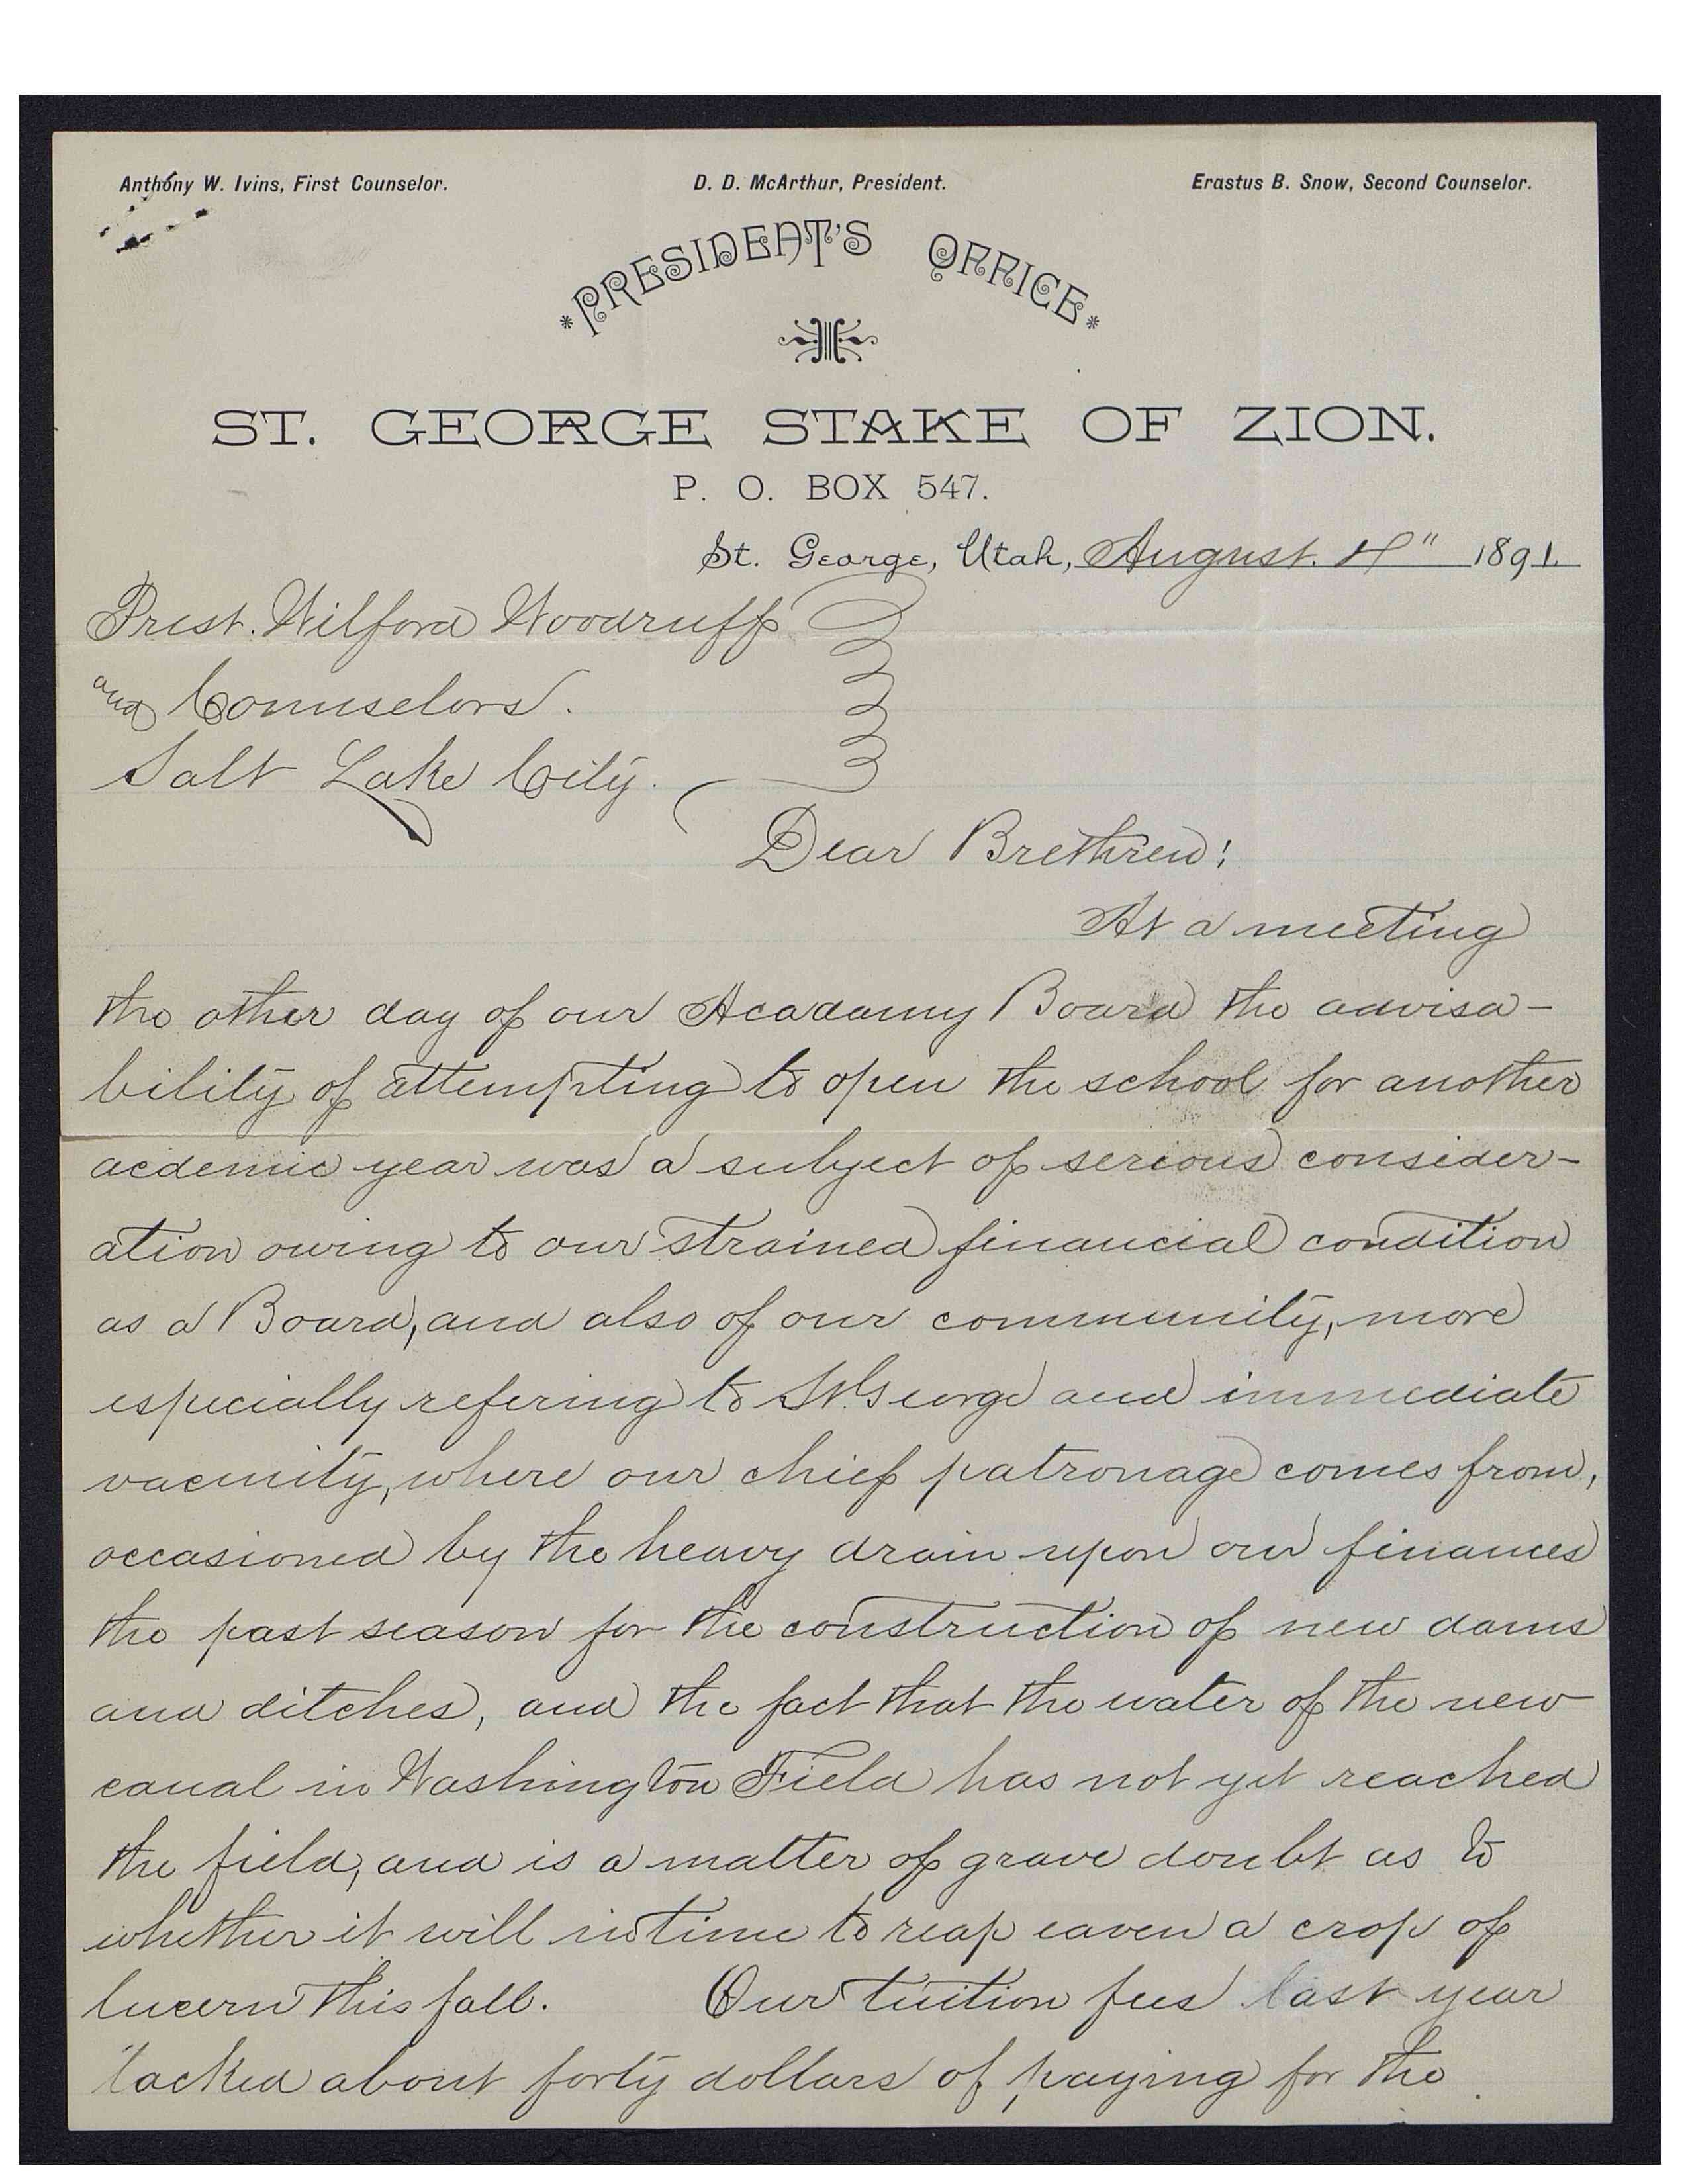 Anthony W. Ivins, First Counselor. D. D. McArthur, President. Erastus B. Snow, Second Counselor.
PRESIDENT'S OFFICE
ST. GEORGE STAKE OF ZION.
P. O. BOX 547.
St. George, Utah, August. 4" 1891.
Prest. Wilford Woodruff
and Counselors.
Salt Lake City.
Dear Brethren:
At a meeting
the other day of our Acadamy Board the advisa-
bility of attempting to open the school for another
acdemic year was a subject of serious consider-
ation owing to our strained financial condition
as a Board, and also of our community, more
especially refering to St. George and immediate
vacinity, where our chief patronage comes from,
occasioned by the heavy drain upon our finances
the past season for the construction of new dams
and ditches, and the fact that the water of the new
canal in Washington Field has not yet reached
the field, and is a matter of grave doubt as to
whether it will in time to reap eaven a crop of
lucern this fall. Our tuition fees last year
lacked about forty dollars of paying for the